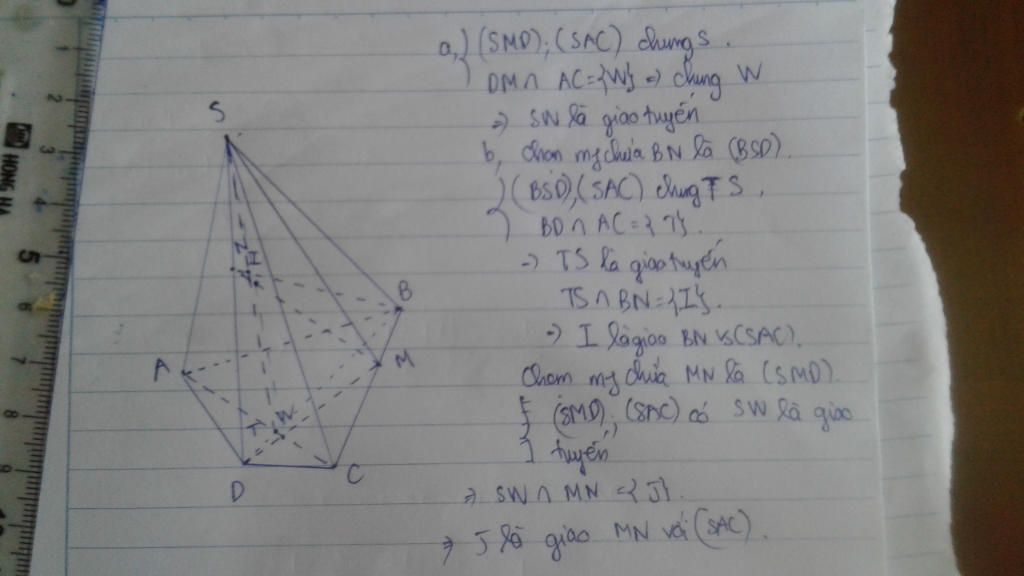 a,) (SMD); (SAC) chung S.
DM ∩ AC = {W} => chung W
=> SW là giao tuyến
b, Chọn mp chứa BN là (BSD).
(BSD), (SAC) chung S.
BD ∩ AC = {T}.
=> TS là giao tuyến
TS ∩ BN = {I}.
=> I là giao BN vs (SAC).
Chọn mp chứa MN là (SMD).
(SMD); (SAC) có SW là giao
tuyến
=> SW ∩ MN = {J}.
=> J là giao MN với (SAC).
S
N
B
A
M
W
T
D
C
1
2
3
4
5
6
7
8
9
HONG HA